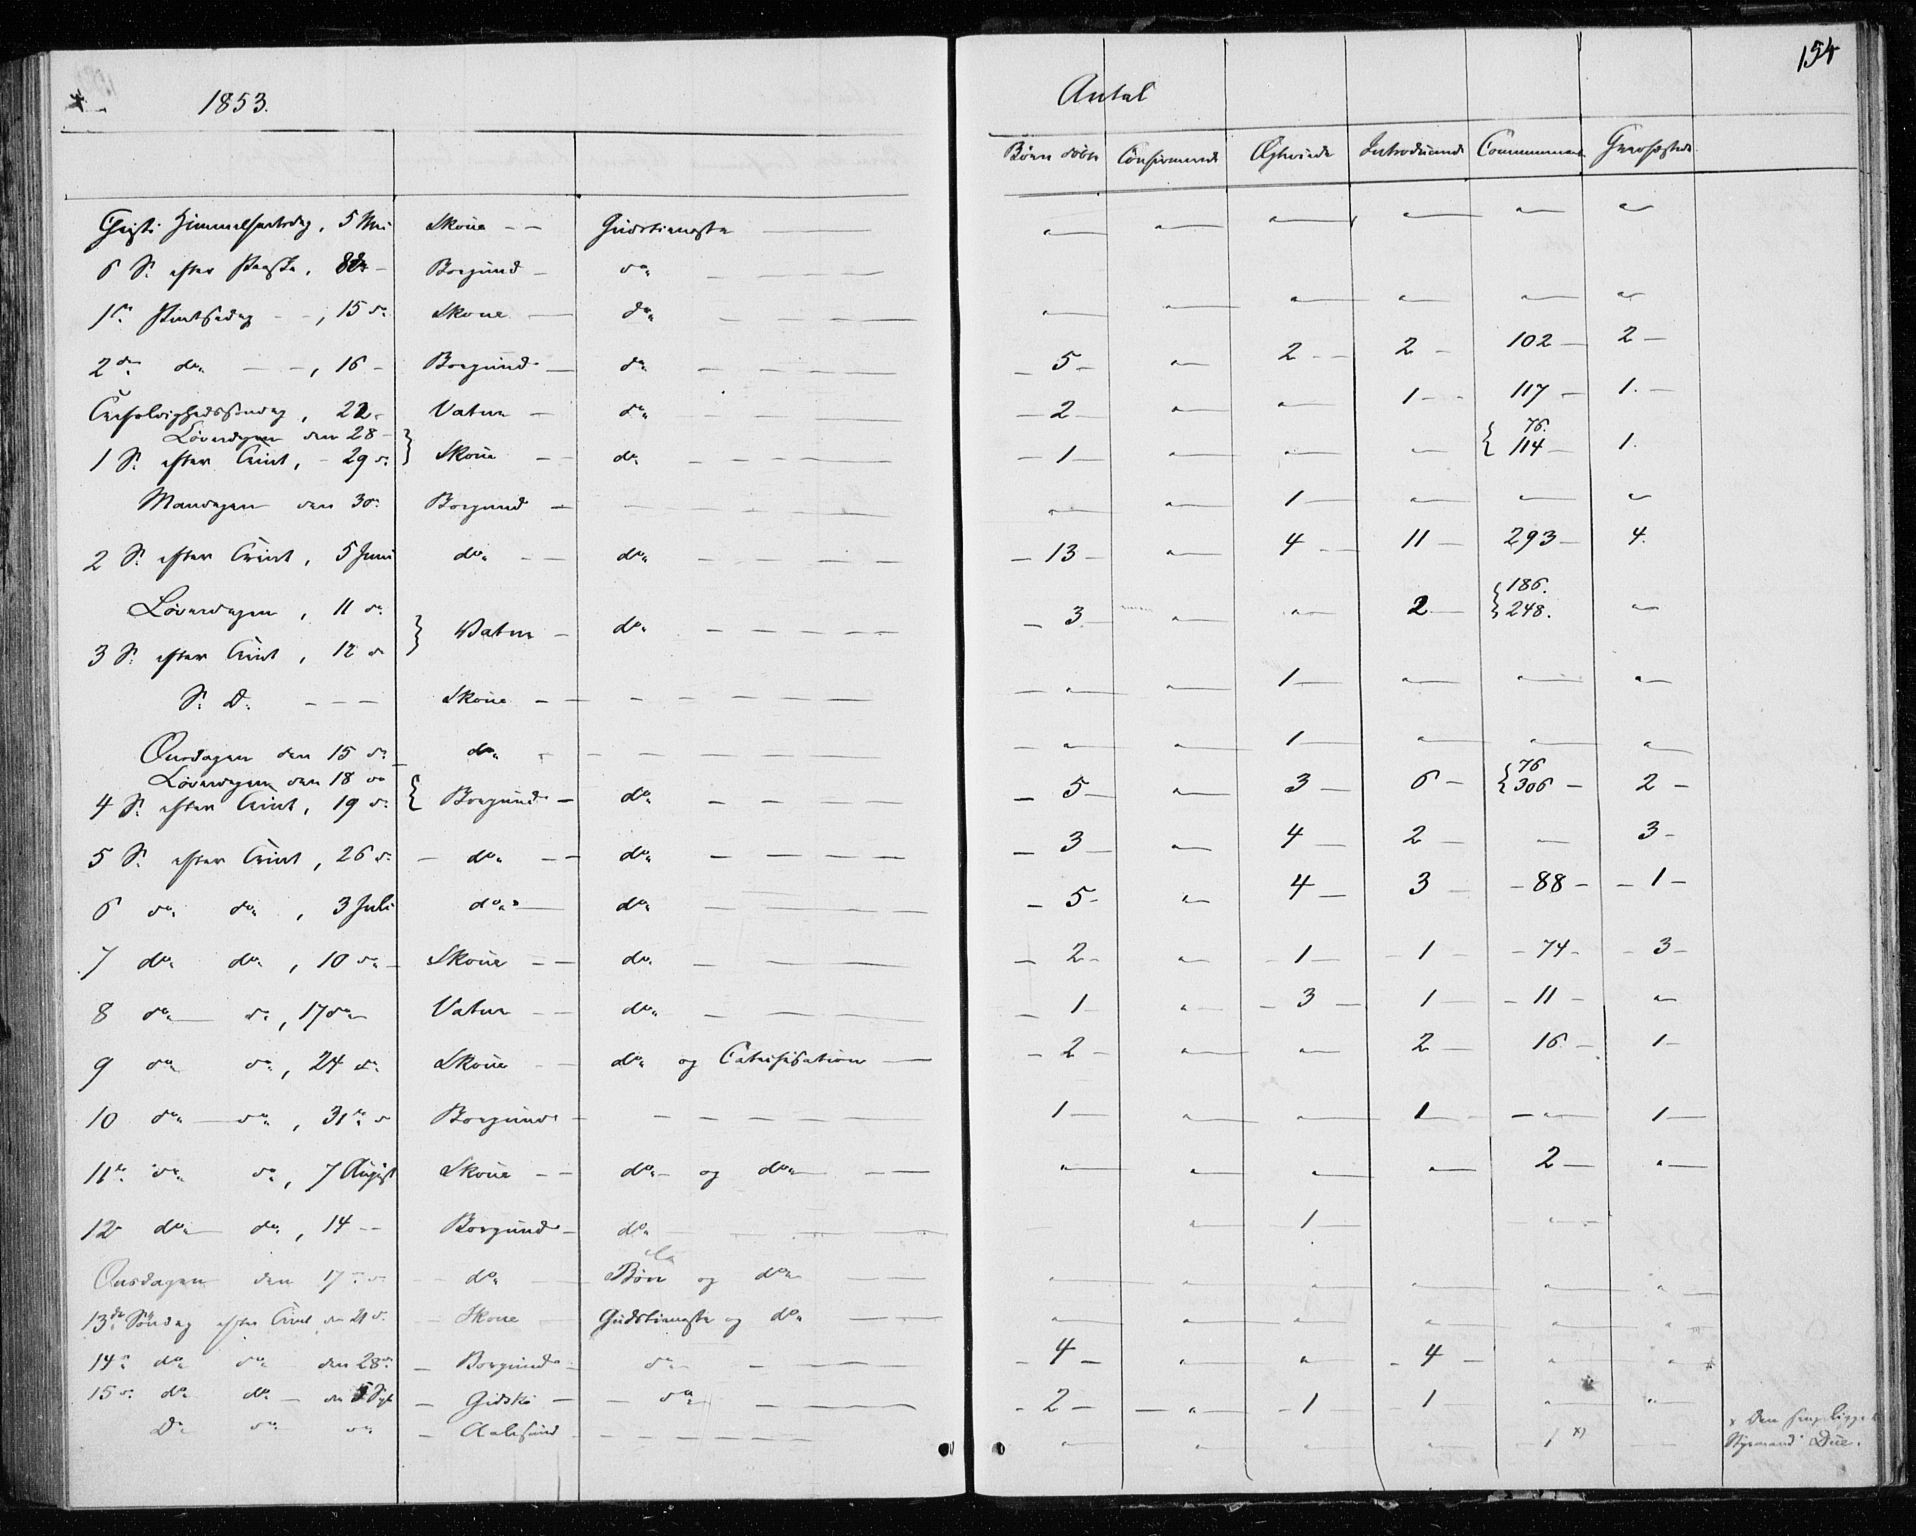 154
1853. Antal
Børn døbte Confirmerede Ægteviede Introducerede Communicant Trolovede
Christi Himmelfartsdag, 5 Mai Skoue - - Gudstieneste " " " " " "
6 S. efter Paaske, 8 do - Borgund - do
1ste Pintsedag - -, 15 do Skoue - do " " " " " "
2den do - -, 16 - Borgund - do 5 " 2 2 102 2
Trefoldighedssøndag, 22 - Vatne - do 2 " " 1 117 1
Løverdagen den 28 - 76.
1 S. efter Trint, - 29 do } Skoue - do 1 " " " { 114 1.
Mandagen den 30 Borgund - " " 1 " " "
2 S. efter Trint, 5 Juni do - - do 13 " 4 11 293 4.
Løverdagen, 11 do 186.
3 S. efter Trint, 12 do } Vatne - do 3 " " 2 { 248. "
S. D. - - - Skoue - " " 1 " " "
Onsdagen den 15 do do " " 1 " " "
Løverdagen den 18 do 76
4 S. efter Trint, 19 do { Borgund - do 5 " 3 6 { 306 2
5 S. efter Trint, 26 do - do - - do 3 " 4 2 " 3
6 do do, 3 Juli do do 5 " 4 3 88 1
7 do do, 10 do Skoue - - do 2 " 1 1 74 3
8 do do, 17 do Vatne - - do 1 " 3 1 11 "
9 do do, 24 do Skoue - - do og Catechisation 2 " " 2 16 1
10 do do, 31 do Borgund 1 " " 1 " 1
11te do do, 7 August Skoue - - do og do " " " " 2 "
12 do do, 14 - - Borgund - do " 1 "
Onsdagen den 17 do do Bøn og do " " " " " "
13de Søndag efter Trint den 21 do Skoue Gudstieneste og do " " " " " "
14 do do den 28 do Borgund do 4 " " 4 " "
15 do do den 5 Sept Gidske do 2 " 1 1 " "
Do do do Aalesund " " " " 1 x) 
x Den
Styrmand Due.